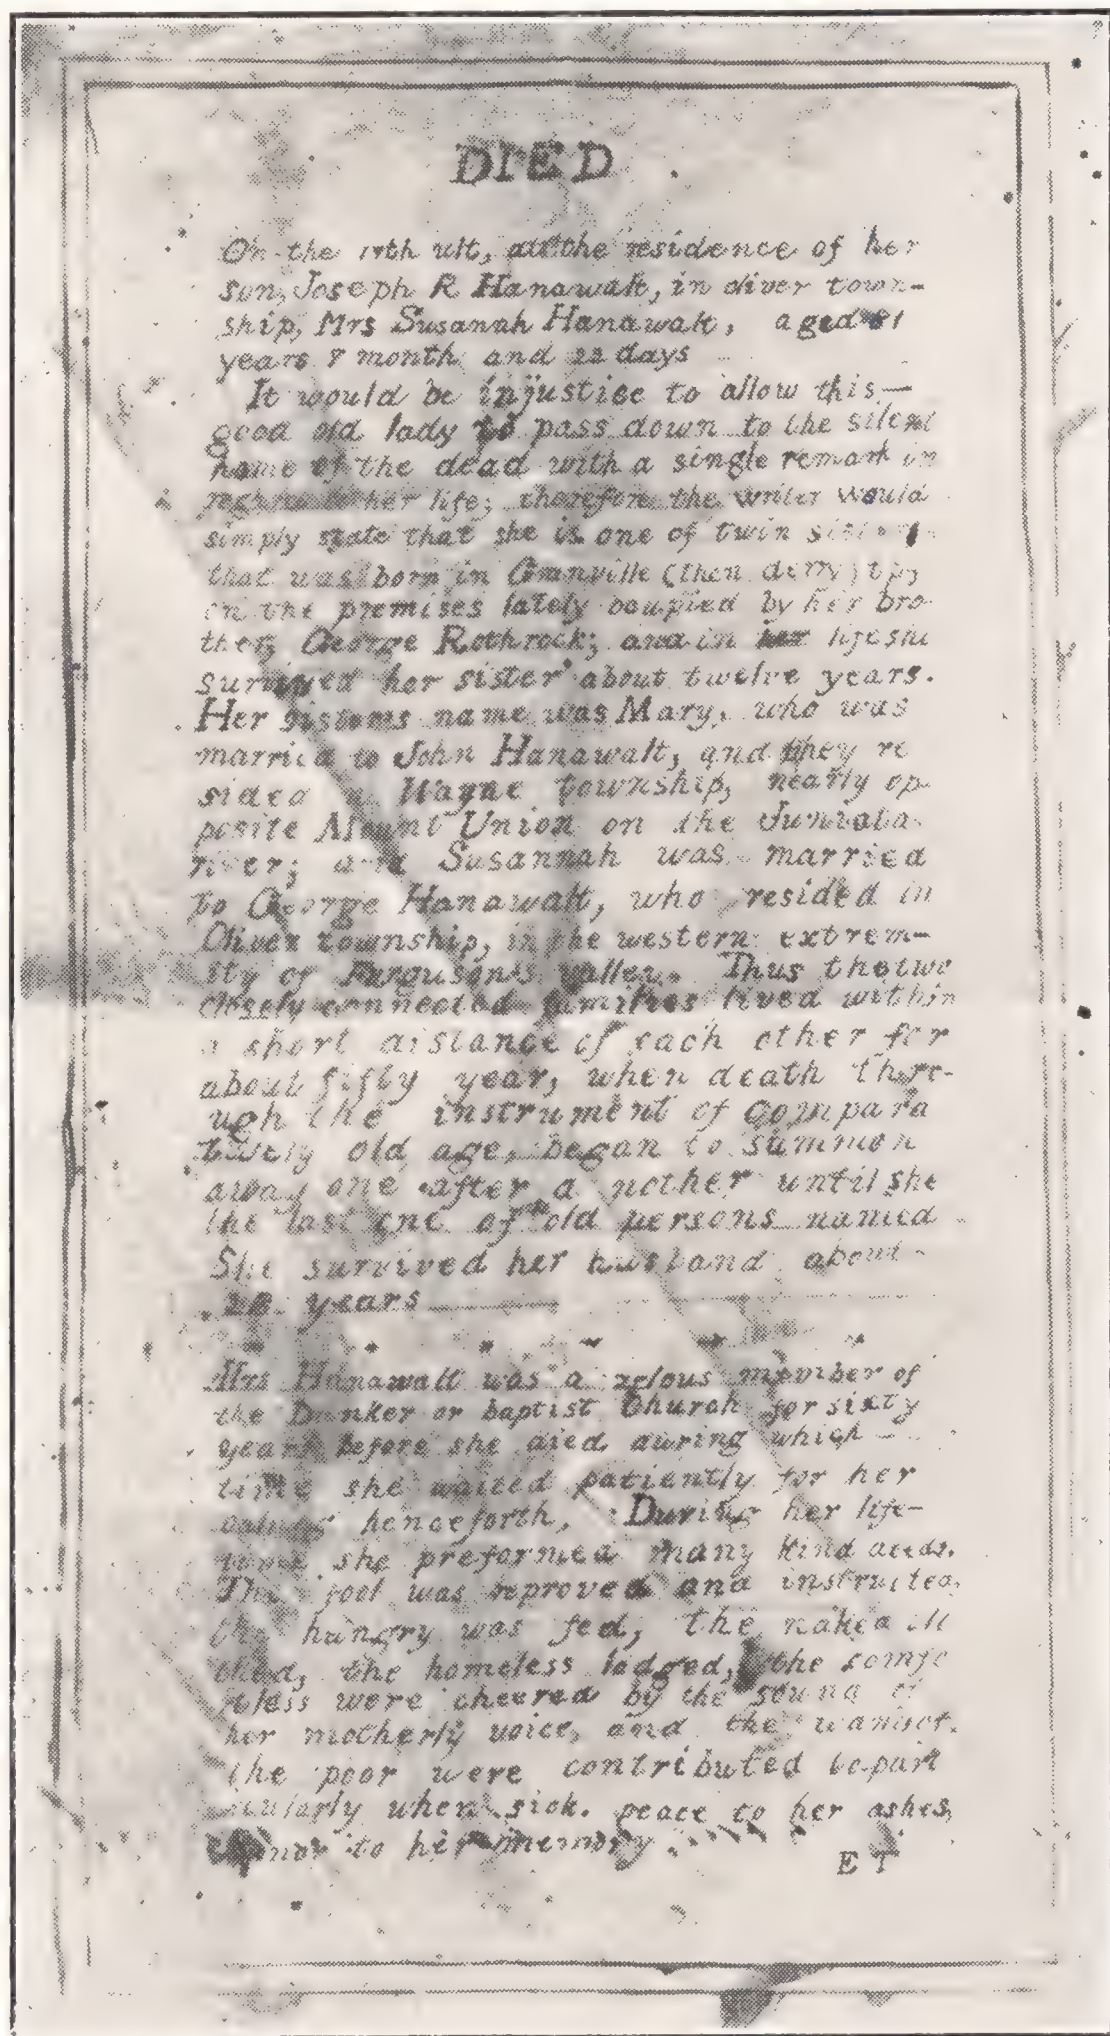 DIED
On the 17th ult, at the residence of her
son, Joseph R Hanawalt, in oliver town-
ship, Mrs Susannah Hanawalt, aged 81
years 7 month and 22 days
It would be injustice to allow this—
good old lady to pass down to the silent
home of the dead with a single remark in
her life; therefore the writer would
simply state that she is one of twin sisters
that was born in Granville (then derry) tp,
on the premises lately ocupied by her bro-
ther, George Rothrock; and in her life she
survived her sister about twelve years.
Her sisters name was Mary, who was
married to John Hanawalt, and they re
sided in Wayne township, nearly op-
posite Mount Union on the Juniata
river; and Susannah was married
to George Hanawalt, who resided in
Oliver township, in the western extrem-
ity of Ferguson's valley. Thus the two
closely connected families lived within
a short distance of each other for
about fifty year, when death thro-
ugh the instrument of compara
tively old age, began to summon
away one after a nother until she
the last one of old persons named
She survived her husband about
20 years
Mrs Hanawalt was a zelous member of
the Dunker or baptist Church for sixty
years before she died during which —
time she waited patiently for her
henceforth, During her life-
time she preformed many kind deeds.
The fool was reproved and instructed,
the hungry was fed, the naked clo
thed, the homeless lodged, the comfo
rtless were cheered by the sound of
her motherly voice, and the wants of
the poor were contributed to part
icularly when sick. peace to her ashes,
honor to her memory.
E T